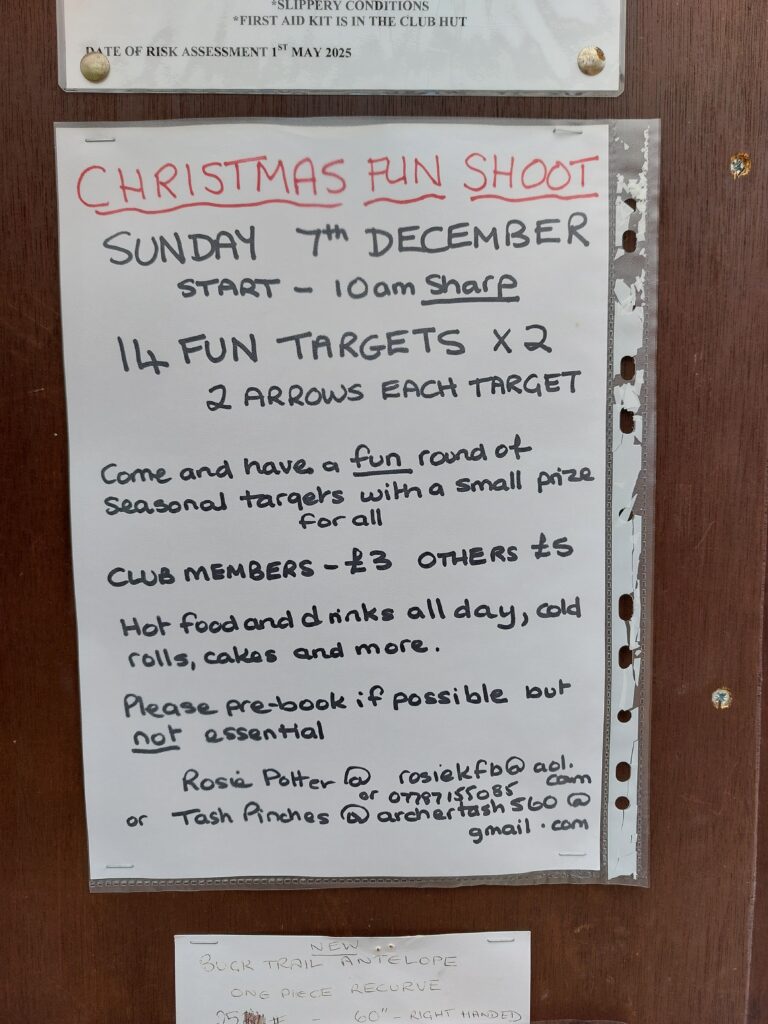 *SLIPPERY CONDITIONS
*FIRST AID KIT IS IN THE CLUB HUT
DATE OF RISK ASSESSMENT 1ST MAY 2025
CHRISTMAS FUN SHOOT
SUNDAY 7th DECEMBER
START - 10am Sharp
14 FUN TARGETS X 2
2 ARROWS EACH TARGET
Come and have a fun round of
seasonal targets with a small prize
for all
CLUB MEMBERS - £3 OTHERS £5
Hot food and drinks all day, cold
rolls, cakes and more.
Please pre-book if possible but
not essential
Rosie Potter @ rosiekfb@aol.
com
or 07787155085
or Tash Pinches @ archertash560@
gmail.com
NEW
BUCK TRAIL ANTELOPE
ONE PIECE RECURVE
25 # - 60" - RIGHT HANDED